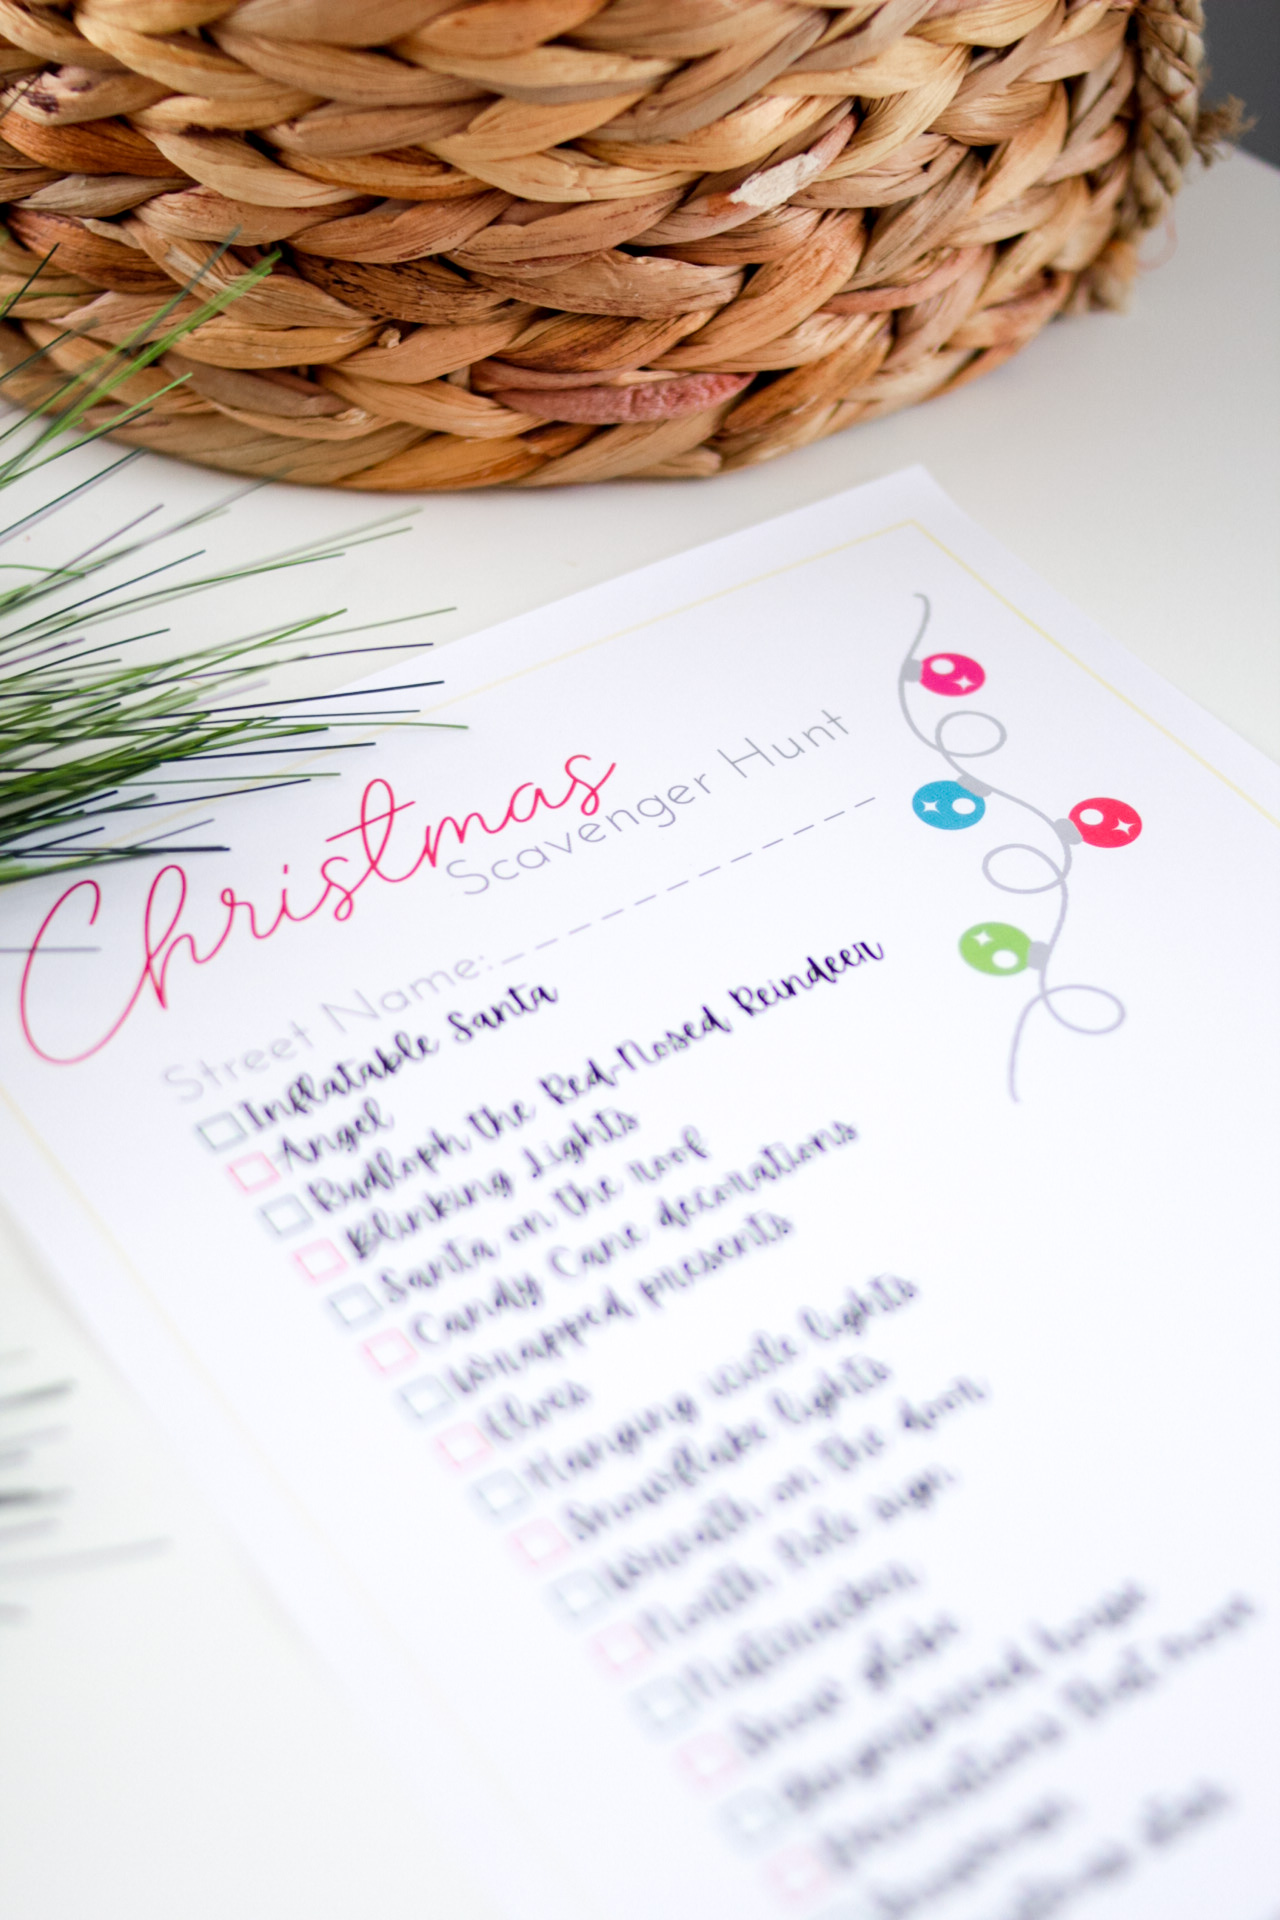 Christmas
Scavenger Hunt
Street Name:
Inflatable Santa
Angel
Rudloph the Red-Nosed Reindeer
Blinking Lights
Santa on the roof
Candy Cane decorations
Wrapped presents
Elves
Hanging icicle lights
Snowflake lights
Wreath on the door
North Pole sign
Nutcracker
Snow globe
Gingerbread house
Decorations that move